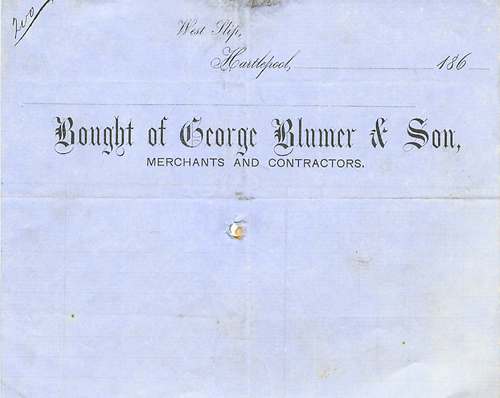 West Slip,
Hartlepool, 186
Bought of George Blumer & Son,
MERCHANTS AND CONTRACTORS.